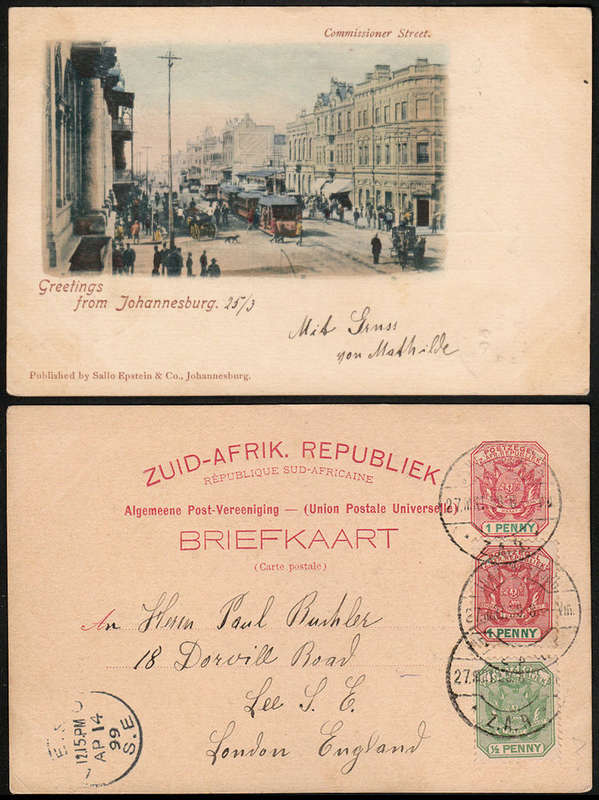 Commissioner Street.
Greetings
from Johannesburg. 25/3
Mit Gruss
von Mathilde
Published by Sallo Epstein & Co., Johannesburg.
ZUID-AFRIK. REPUBLIEK
RÉPUBLIQUE SUD-AFRICAINE
Algemeene Post-Vereeniging — (Union Postale Universelle)
BRIEFKAART
(Carte postale)
POSTZEGEL
1 PENNY
Z.A.R
1 PENNY
An Herrn Paul
18 Road
Lee S. E.
London England
12.15.PM
AP 14
99
S.E
Z.A.R
½ PENNY